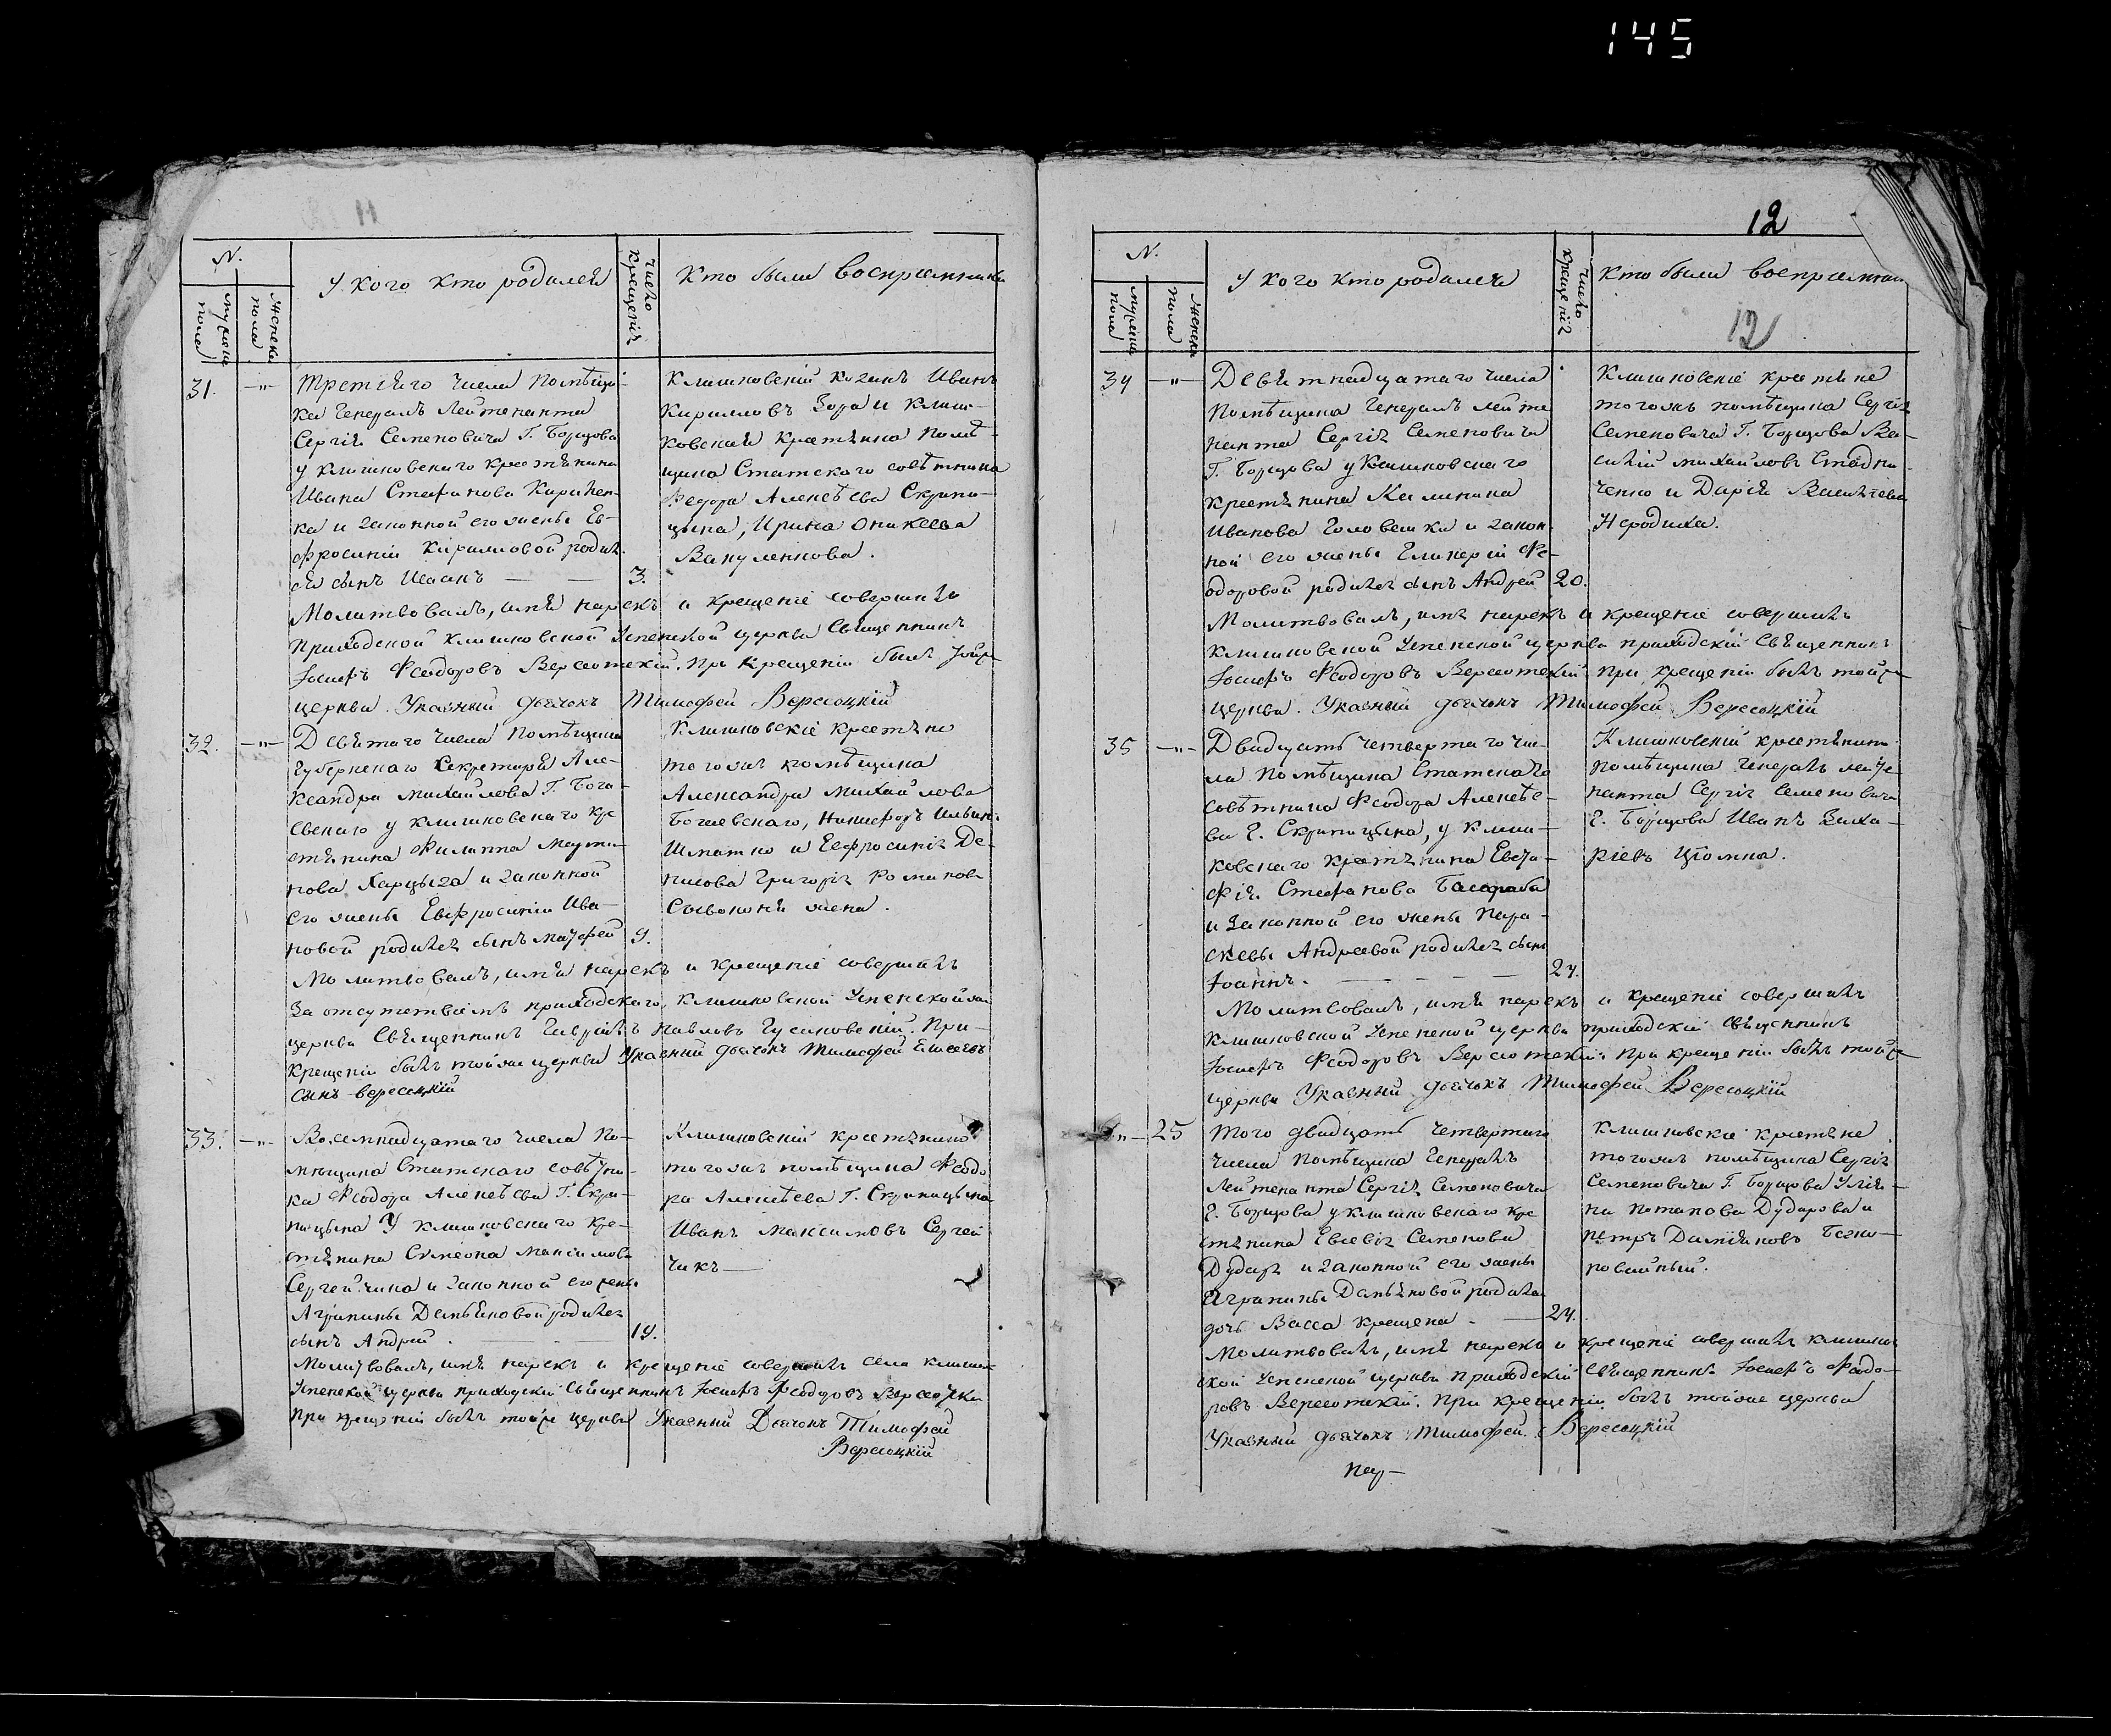 145
N.
мужеска пола
женска пола
У кого кто родился
Число крещенія
Кто были восприемники
31.
Третяго числа Помѣщи-
ка Генералъ Лейтенанта
Сергія Семеновича Г. Борщова
у клишковскаго крестянина
Ивана Стефанова
ка и законной его жены Ев-
фросиніи Кириловой родил-
ся сынъ
3.
Клишковскій козакъ Иванъ
Кирилловъ Зора и клиш-
ковская крестянка помѣ-
щика Статскаго совѣтника
Феодора Алексѣева Скрипи-
цына, Ирина Оникеева
Вакуленкова.
Молитвовалъ, имя нарекъ и крещеніе совершилъ
приходской клишковской Успенской церкви Священникъ
Іосифъ Феодоровъ Вересотскій. При крещеніи былъ тойже
церкви Указный дьячокъ Тимофей Вересоцкій
32.
Девятаго числа Помѣщика
Губернскаго Секретаря Але-
ксандра Михайлова Г. Бога-
евскаго у клишковскаго кре
стянина Филиппа Марти-
нова Харцыза и законной
его жены Евфросиніи Ива-
новой родился сынъ Матфей
9.
Клишковскіе крестяне
тогожъ помѣщика
Александра Михайлова
Богаевскаго, Никифоръ
Шматко и Евфросинія Де-
нисова Григорія Романова
жена.
Молитвовалъ, имя нарекъ и крещеніе совершилъ
За отсутствіемъ приходскаго, клишковской Успенской
церкви Священникъ Гавріилъ Павловъ Гусаковскій. При-
крещеніи былъ тойже церкви Указный дьячокъ Тимофей Елисеевъ
сынъ Вересоцкій
33.
Восемнадцатаго числа По-
мѣщика Статскаго совѣтни-
ка Феодора Алексѣева Г. Скри-
пицына У клишковскаго кре-
стянина Симеона Максимова
Сергейчика и законной его жены
Агрипины Демьяновой родился
сынъ Андрей.
19.
Клишковскій крестянинъ
тогожъ помѣщика Феодо
ра Алексѣева Г. Скрипицына
Иванъ Максимовъ Сергей
чикъ
Молитвовалъ, имя нарекъ и крещеніе совершилъ села клишк
Успенской церкви приходскій Священникъ Іосифъ Феодоровъ Вересотскій
При крещеніи былъ тойже церкви Указный Дьячокъ Тимофей
Вересоцкій
12
N.
мужеска пола
женска пола
У кого кто родился
Число крещенія
Кто были восприемники
12
34
Девятнадцатаго числа
Помѣщика Генералъ лейте
нанта Сергія Семеновича
Г. Борщова у Клишковскаго
крестянина Калинника
Иванова Головешки и закон
ной его жены Гликеріи Фе-
одоровой родился сынъ Андрей
20.
Клишковскіе крестяне
тогожъ помѣщика Сергія
Семеновича Г. Борщова Ва-
силій Михайловъ Стадни-
ченко и Дарія Василіева
Неродиха.
Молитвовалъ, имя нарекъ и крещеніе совершилъ
клишковской Успенской церкви приходскій Священникъ
Іосифъ Феодоровъ Вересотскій при крещеніи былъ тойже
церкви. Указный дьячокъ Тимофей Вересоцкій
35
Двадцать четвертаго чис-
ла Помѣщика Статскаго
совѣтника Феодора Алексѣе-
ва Г. Скрипицына, у клиш-
ковскаго крестянина Евста-
фія Стефанова Басараба
и законной его жены Пара-
скевы Андреевой родился сынъ
Іоаннъ.
24.
Клишковскій крестянинъ
помѣщика Генералъ лейте-
нанта Сергія Семеновича
Г. Борщова Иванъ Заха-
ріевъ Цюмка.
Молитвовалъ, имя нарекъ и крещеніе совершилъ
клишковской Успенской церкви приходскій священникъ
Іосифъ Феодоровъ Вересотскій. При крещеніи былъ тойже
церкви Указный дьячокъ Тимофей Вересоцкій
25
Того двадцать четвертаго
числа Помѣщика Генералъ
Лейтенанта Сергія Семеновича
Г. Борщова у клишковскаго кре
стянина Евсевія Семенова
Дударя и законной его жены
Агрипины Демьяновой родилась
дочь Васса крещена -
24.
клишковскіе крестяне
тогожъ помѣщика Сергія
Семеновича Г. Борщова Улія-
на Потапова Дударова и
петръ Даміановъ Безко-
ровайный.
Молитвовалъ, имя нарекъ и крещеніе совершилъ клишков
ской Успенской церкви Приходскій Священникъ Іосифъ Феодо-
ровъ Вересотскій. При крещеніи былъ тойже церкви
Указный дьячокъ Тимофей Вересоцкій